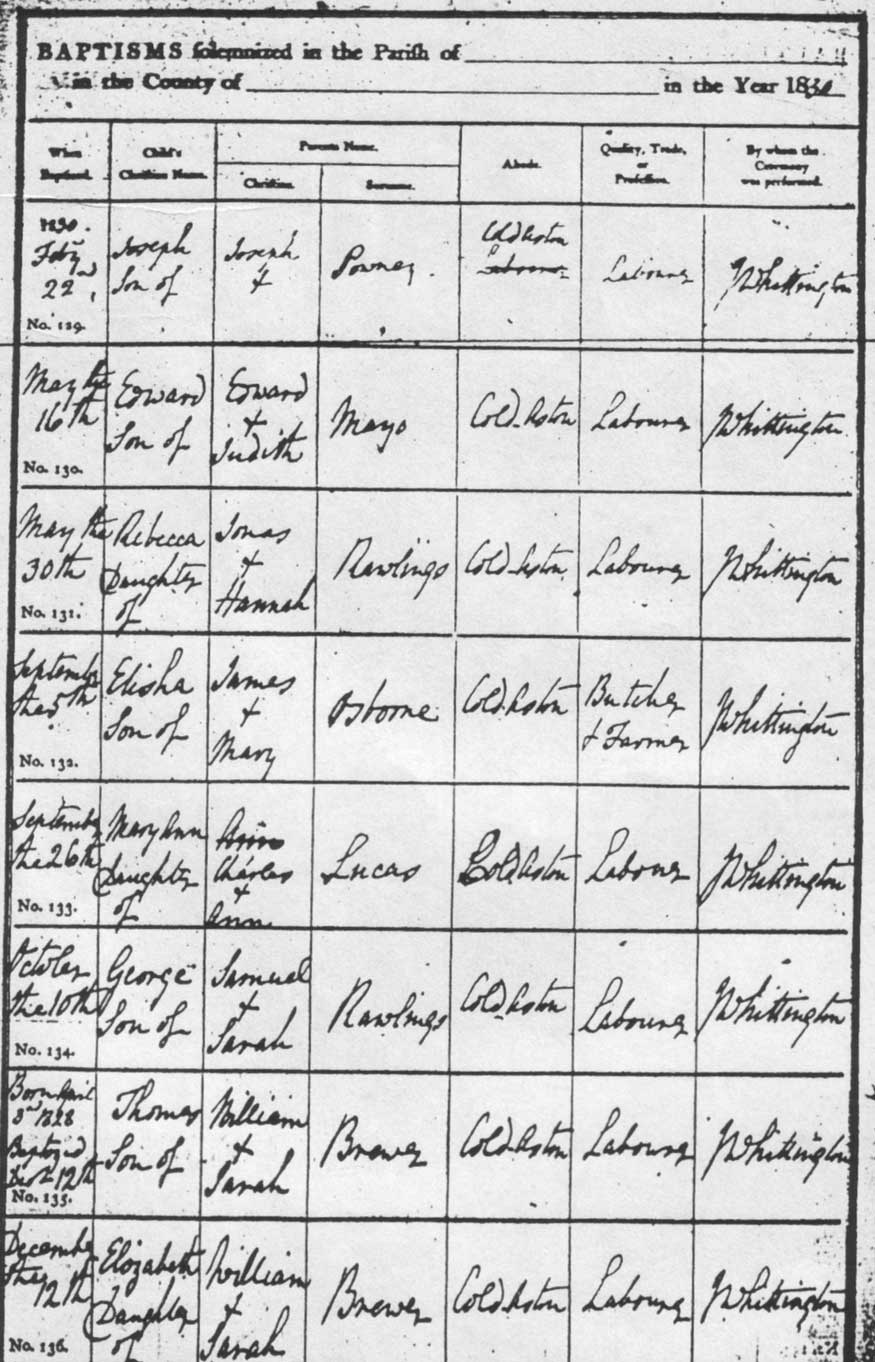 BAPTISMS solemnized in the Parish of
in the County of in the Year 1830
When Baptized.
Child's Christian Name.
Parents Name.
Christian.
Surname.
Abode.
Quality, Trade, or Profession.
By whom the Ceremony was performed.
1830.
Feby
22nd,
No. 129.
Joseph
Son of
Joseph
&
Powney.
Cold Aston
Labourer
Labourer
JWhittington
May the
16th
No. 130.
Edward
Son of
Edward
+
Judith
Mayo
Cold Aston
Labourer
JWhittington
May the
30th
No. 131.
Rebecca
Daughter
of
Jonas
+
Hannah
Rawlings
Cold Aston
Labourer
JWhittington
September
the 5th
No. 132.
Elisha
Son of
James
+
Mary
Osborne
Cold Aston
Butcher
& Farmer
JWhittington
September
the 26th
No. 133.
Mary Ann
Daughter
of
Ann
Charles
+
Ann
Lucas
Cold Aston
Labourer
JWhittington
October
the 10th
No. 134.
George
Son of
Samuel
+
Sarah
Rawlings
Cold Aston
Labourer
JWhittington
Born April
3rd 1828
Baptized
Decr 12th
No. 135.
Thomas
Son of
William
+
Sarah
Brewer
Cold Aston
Labourer
JWhittington
December
the
12th
No. 136.
Elizabeth
Daughter
of
William
+
Sarah
Brewer
Cold Aston
Labourer
JWhittington